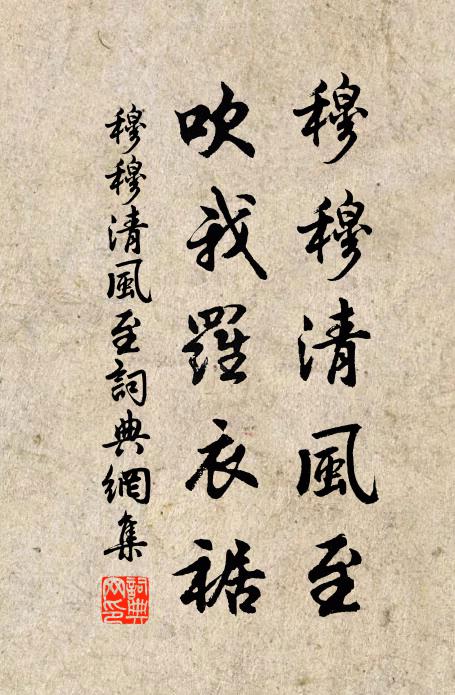 穆穆清風至
吹我羅衣裾
穆穆清風至詞典網集
詞典
网印